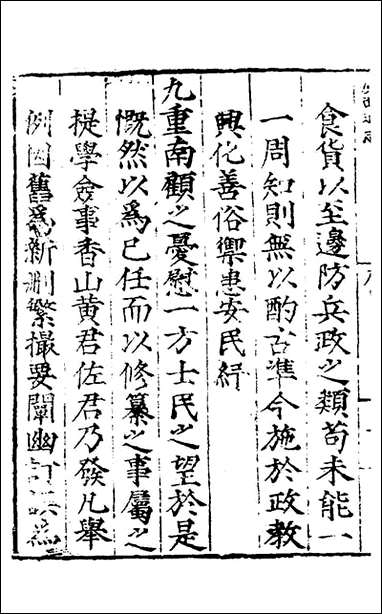 食貨以至邊防兵政之類苟未能一
一周知則無以酌古準今施於政教
興化善俗禦患安民紓
九重南顧之憂慰一方士民之望於是
慨然以爲己任而以修纂之事屬之
提學僉事香山黃君佐君乃發凡舉
例因舊爲新刪繁撮要闡幽訂誤爲